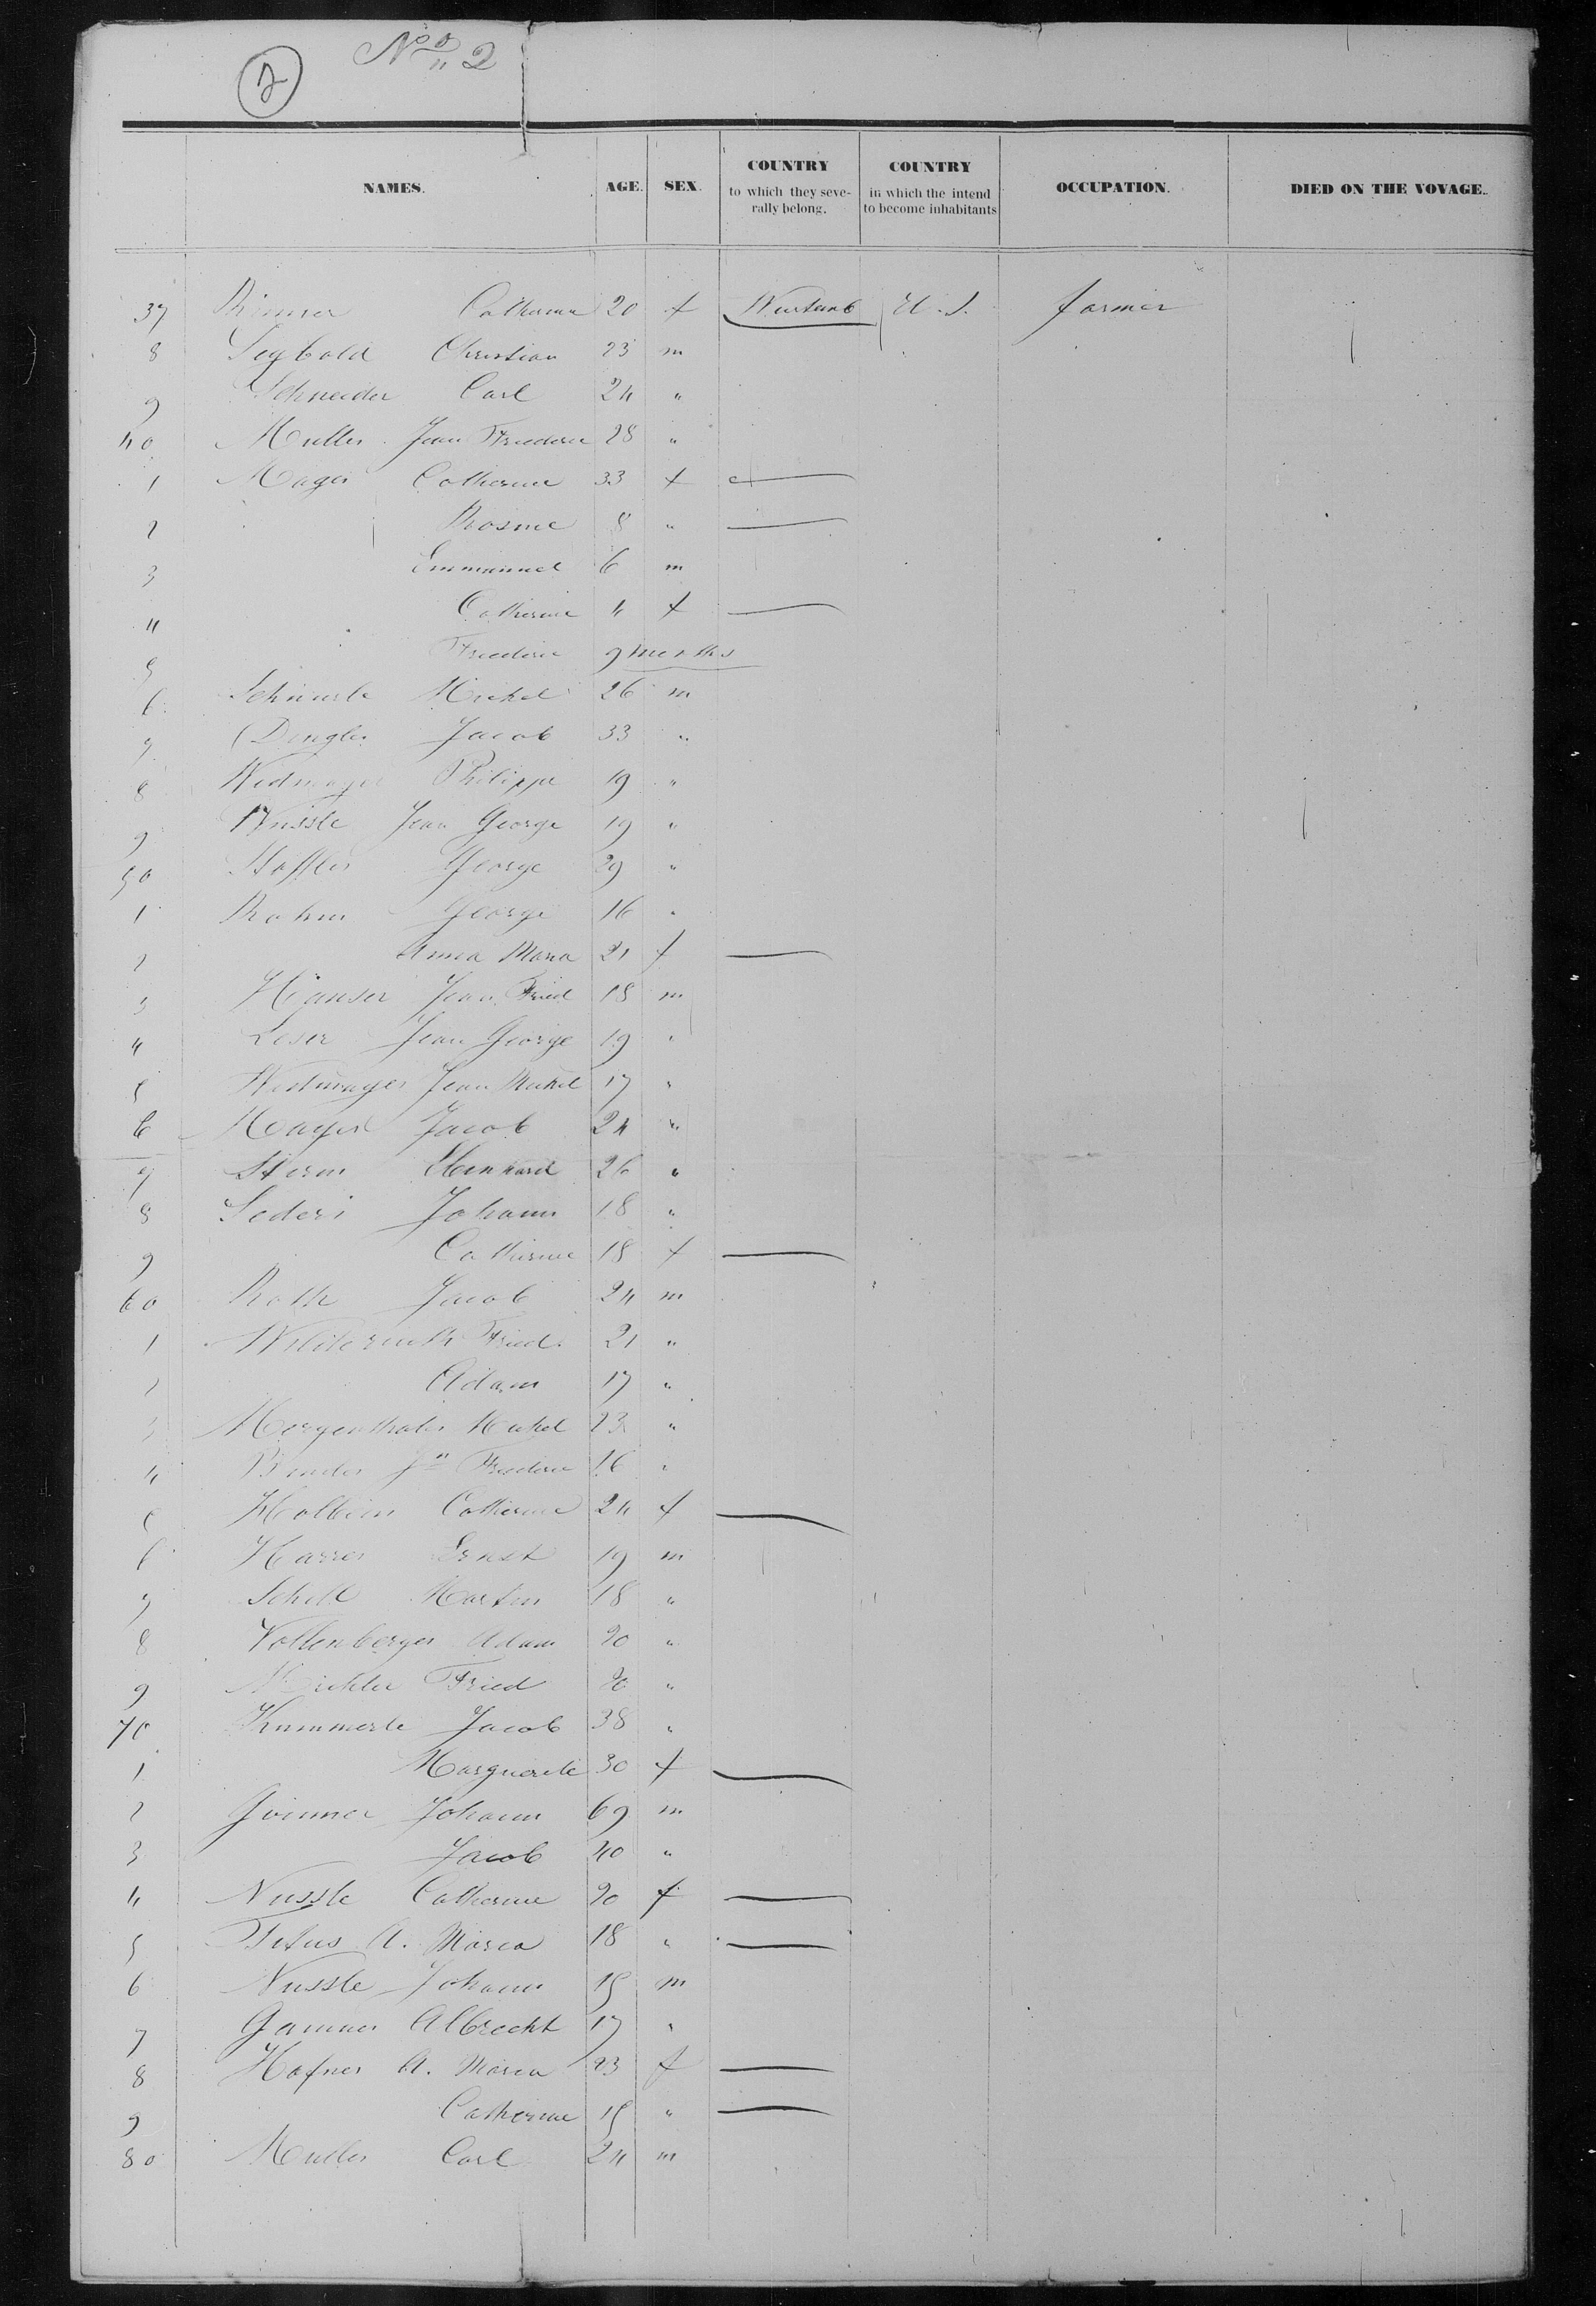 ② Nº 2
NAMES. AGE. SEX. COUNTRY to which they seve- rally belong. COUNTRY in which the intend to become inhabitants OCCUPATION. DIED ON THE VOYAGE.
37 Catherine 20 f Wurtemb U.S. farmer
8 Seybold Christian 23 m
9 Schneider Carl 24 "
40 Muller Jean Frederic 28 "
1 Mager Catherine 33 f —
2 Rosine 8 " —
3 Emmanuel 6 m
4 Catherine 4 f —
5 Frederic 9 months
6 Michel 26 m
7 Dengler Jacob 33 "
8 Widmayer Philippe 19 "
9 Nussle Jean George 19 "
50 Stoffler George 29 "
1 Rohm George 16 "
2 Anna Maria 21 f —
3 Hauser Jean Fried 18 m
4 Leser Jean George 19 "
5 Widmayer Jean Michel 17 "
6 Mayer Jacob 24 "
7 Sterm 26 "
8 Johann 18 "
9 Catherine 18 f —
60 Roth Jacob 24 m
1 Wildermuth Fried. 21 "
2 Adam 17 "
3 Morgenthaler Michel 23 "
4 Binder Jn Frederic 16 "
5 Holbein Catherine 24 f —
6 Harrer Ernst 19 m
7 Schill Martin 18 "
8 Vollenberger Adam 20 "
9 Fried 20 "
70 Kummerle Jacob 38 "
1 Marguerite 30 f —
2 Johann 69 m
3 Jacob 40 "
4 Nussle Catherine 20 f —
5 Titus A. Maria 18 " —
6 Nussle Johann 15 m
7 Albrecht 17 "
8 Hafner A. Maria 23 f —
9 Catherine 15 " —
80 Muller Carl 24 m